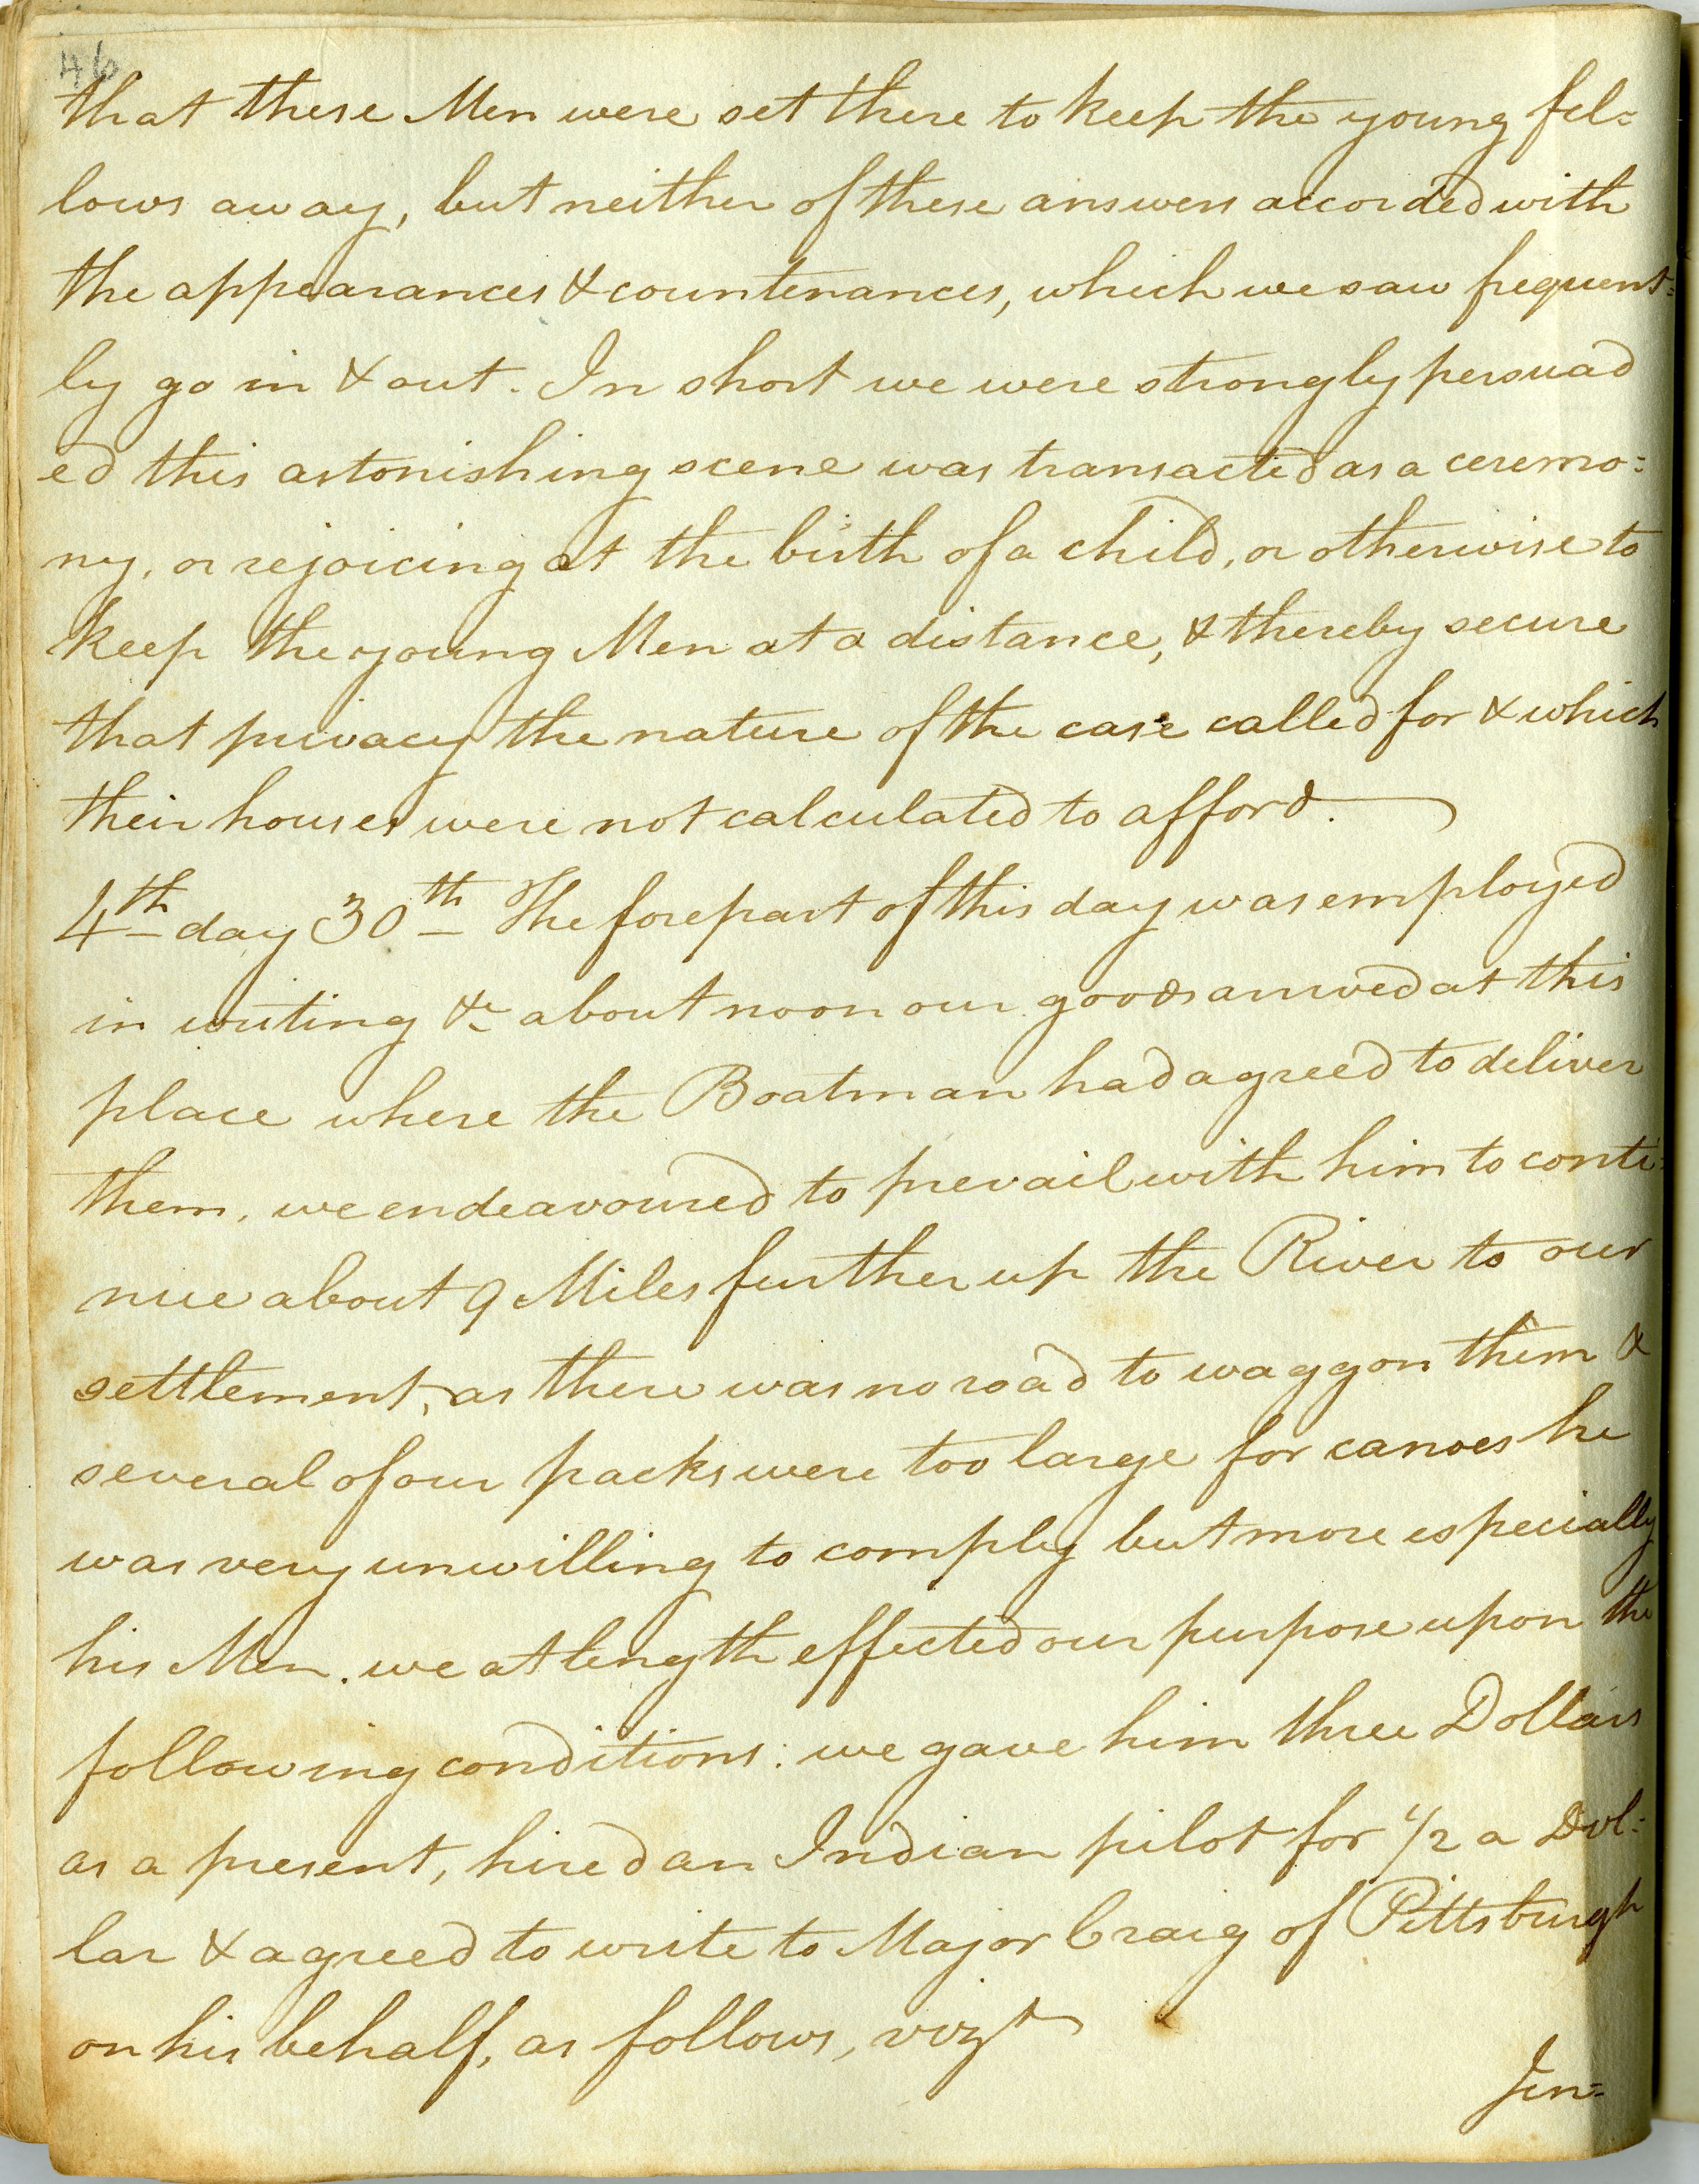 46
that these Men were set there to keep the young fel=
lows away, but neither of these answers accorded with
the appearances & countenances, which we saw frequent=
ly go in & out. In short we were strongly persuad
ed this astonishing scene was transacted as a ceremo=
ny, or rejoicing at the birth of a child, or otherwise to
keep the young Men at a distance, & thereby secure
that privacy the nature of the case called for & which
their houses were not calculated to afford.
4th day 30th The forepart of this day was employed
in writing &c about noon our goods arrived at this
place where the Boatman had agreed to deliver
them, we endeavoured to prevail with him to conti=
nue about 9 Miles further up the River to our
settlement, as there was no road to waggon them &
several of our packs were too large for canoes he
was very unwilling to comply but more especially
his Men. we at length effected our purpose upon the
following conditions: we gave him three Dollars
as a present, hired an Indian pilot for 1/2 a Dol=
lar & agreed to write to Major Craig of Pittsburgh
on his behalf, as follows, vizt
Jen=